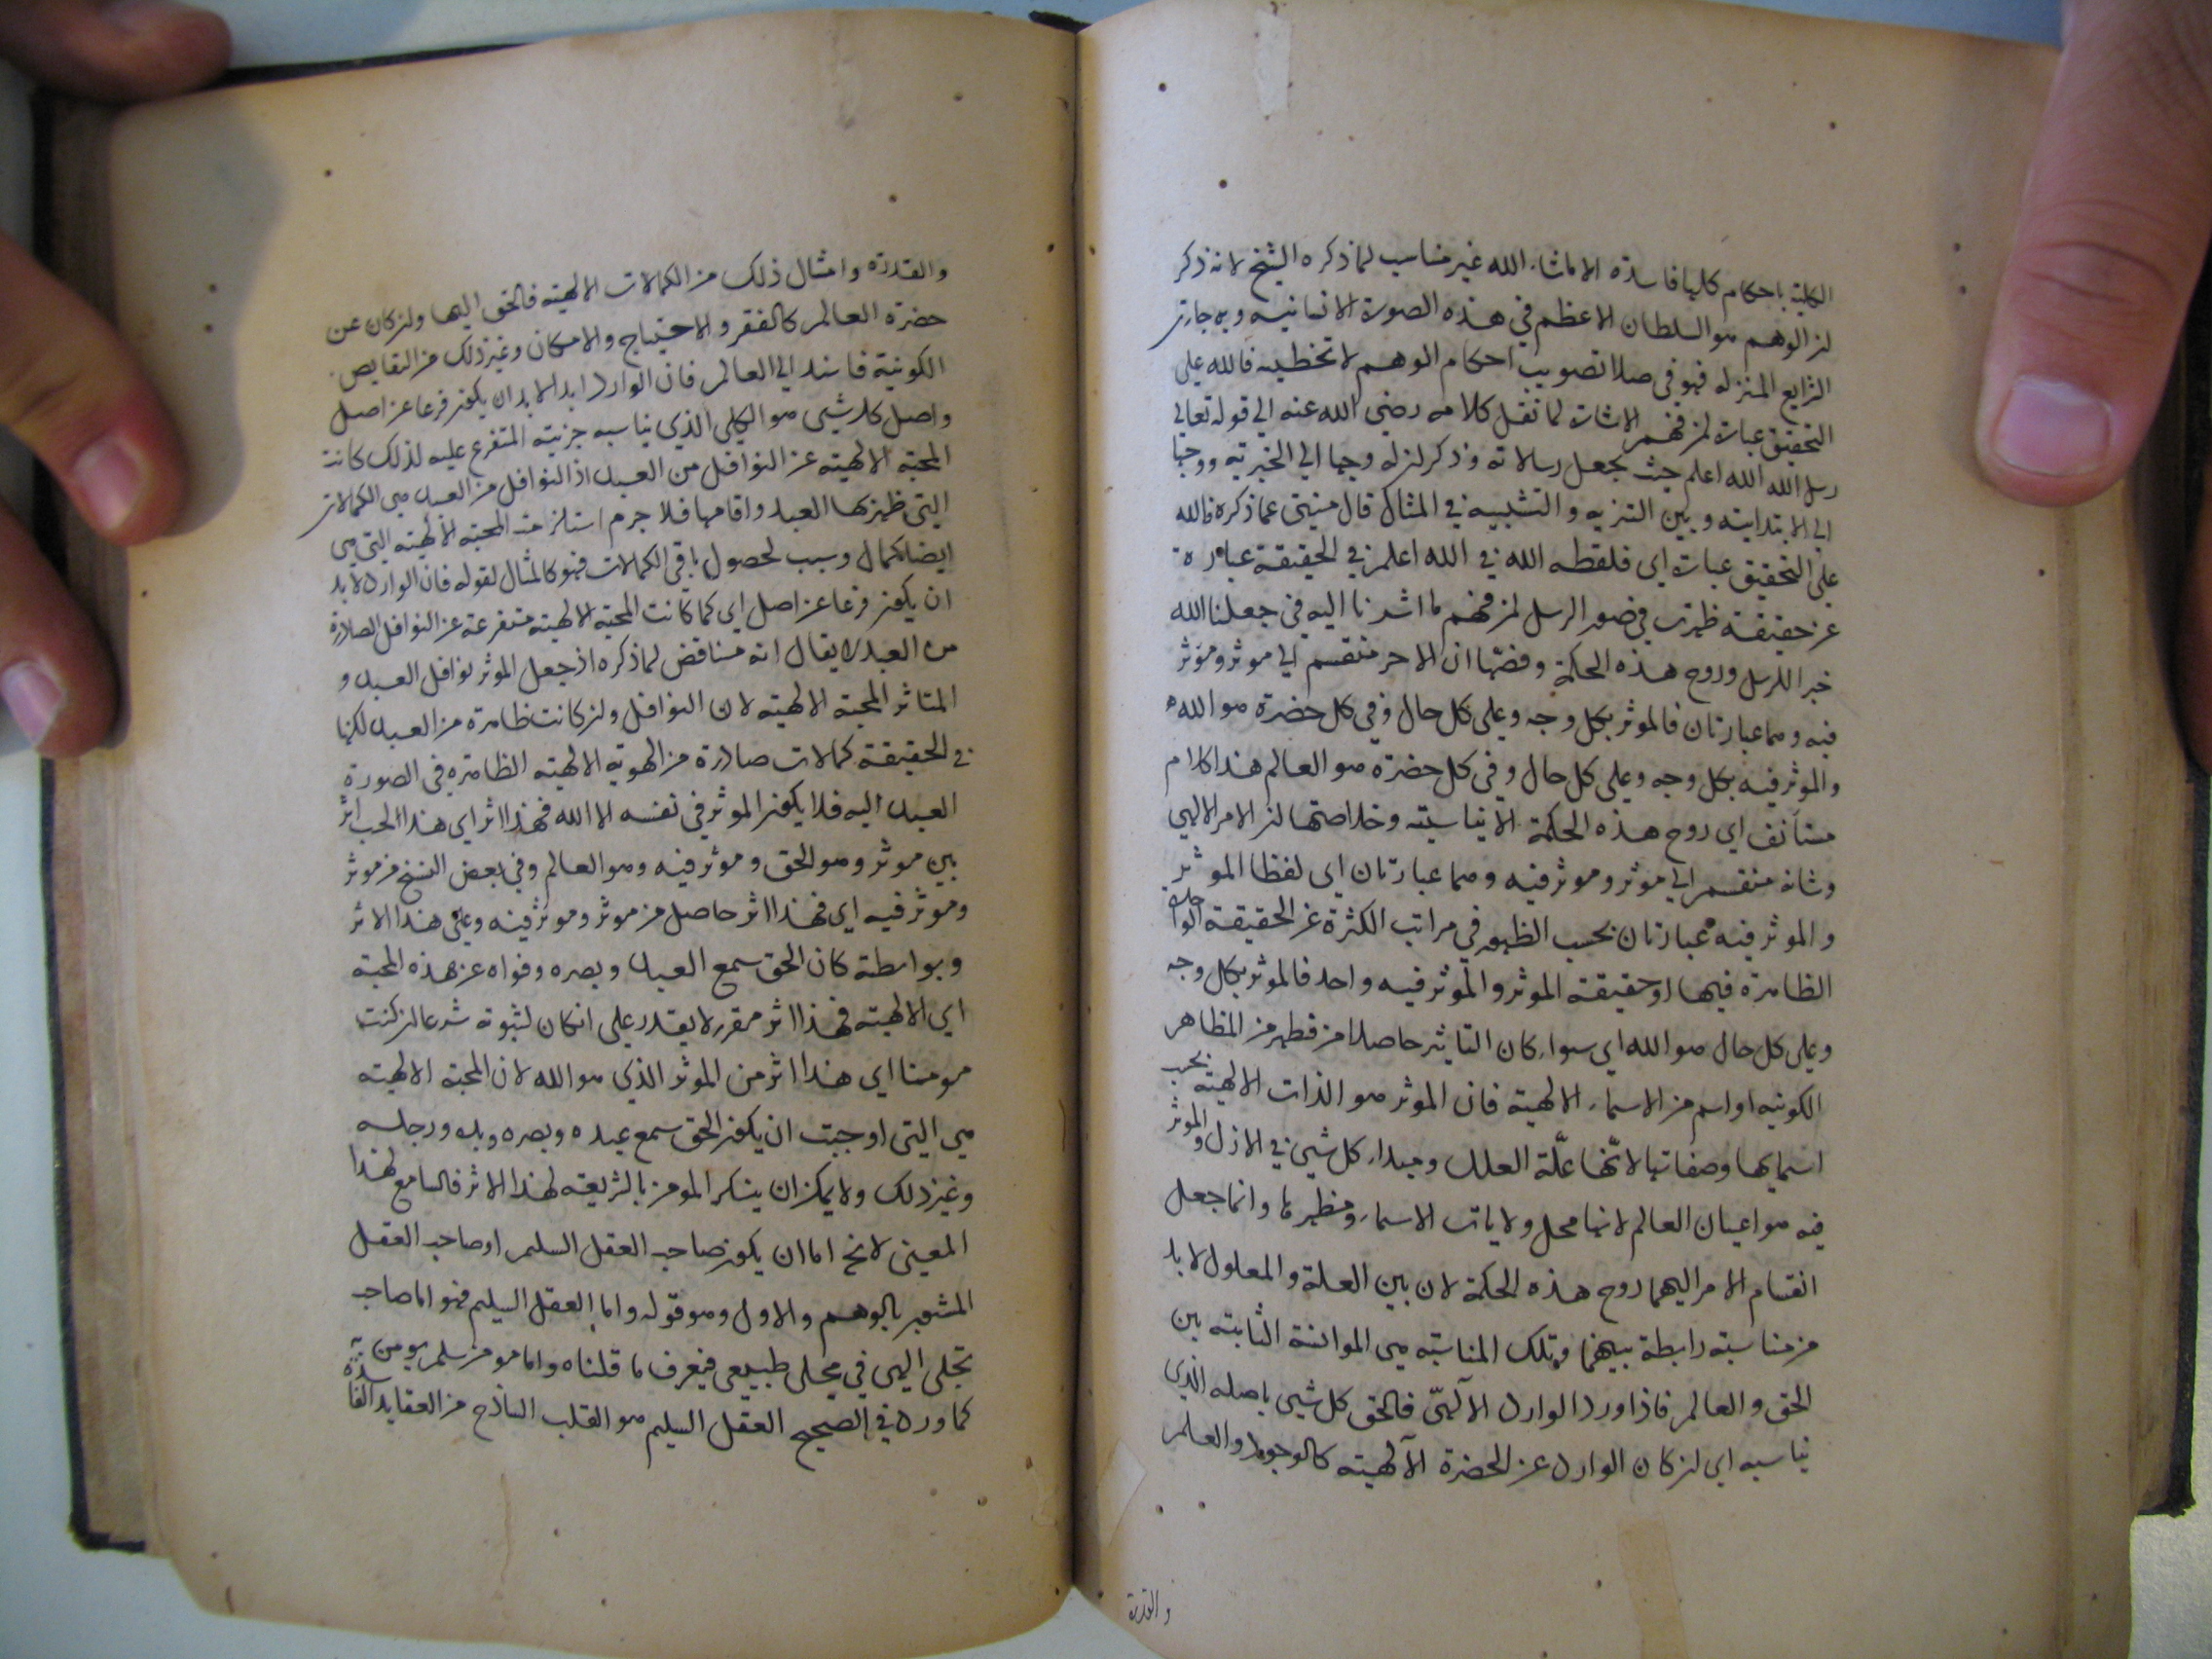 الكلية باحكام كلها فاسدة الا ماشاء الله غير مناسب لما ذكره الشيخ لانه ذكر
لن الوهم هو السلطان الاعظم في هذه الصورة الانسانية وبه جاءت
الشرايع المنزله فهو في صدد تصويب احكام الوهم لا تخطيه فالله على
التحقيق عبارة لمن فهم الاشارة لما نقل كلامه رضي الله عنه الى قوله تعالى
رسل الله الله اعلم حيث يجعل رسالاته وذكر لن له وجها الى الخبرية ووجها
الى الابتدائية وبين التنزيه والتشبيه في المثال قال منبئى عما ذكره فالله
على التحقيق عبارة اى فلفظه الله في الله اعلم في الحقيقة عبارة
عن حقيقة ظهرت في صور الرسل لمن فهم ما اشرنا اليه في جعلنا الله
خبرا للرسل وروح هذه الحكمة وفصها ان الامر منقسم الى موثر وموثر
فيه وهما عبارتان فالموثر بكل وجه وعلى كل حال وفي كل حضرة هو الله
والموثر فيه بكل وجه وعلى كل حال وفي كل حضرة هو العالم هذا كلام
مستأنف اى روح هذه الحكمة الايناسية وخلاصتها لن الامر الالهى
وشانه منقسم الى موثر وموثر فيه وهما عبارتان اى لفظا الموثر
والموثر فيه عبارتان بحسب الظهور في مراتب الكثرة عن الحقيقة الواحدة
الظاهرة فيها او حقيقة الموثر والموثر فيه واحد فالموثر بكل وجه
وعلى كل حال هو الله اى سواء كان التاثير حاصلا من مظهر من المظاهر
الكونيه او اسم من الاسماء الالهية فان الموثر هو الذات الالهية بحسب
اسمايها وصفاتها لانّها علّة العلل ومبداء كل شيئ في الازل والموثر
فيه هو اعيان العالم لانها محل ولايات الاسماء ومظهرها وانما جعل
انقسام الامر اليهما روح هذه الحكمة لان بين العلة والمعلول لا بد
من مناسبة رابطة بينهما وتلك المناسبة هي الموانسة الثابتة بين
الحق والعالم فاذا ورد الوارد الالهىّ فالحق كل شيئ باصله الذى
يناسبه اى لن كان الوارد عن الحضرة الالهية كالوجود والعلم
والقدرة
والقدرة وامثال ذلك من الكمالات الالهية فالحق اليها ولن كان عن
حضرة العالم كالفقر والاحتياج والامكان وغير ذلك من النقايص
الكونية فاسند الى العالم فان الوارد ابدا لابد ان يكون فرعا عن اصل
واصل كل شيئ هو الكلى الذى يناسبه جزيته المتفرع عليه لذلك كانت
المحبة الالهية عن النوافل من العبد اذ النوافل من العبد هي الكمالات
التي ظهر بها العبد واقامها فلا جرم استلزمت المحبة الالهية التي هي
ايضا كمال وسبب لحصول باقي الكمالات فهو كالمثال لقوله فان الوارد لابد
ان يكون فرعا عن اصل اى كما كانت المحبة الالهية متفرعة عن النوافل الصادرة
من العبد لا يقال انه مناقض لما ذكره اذ جعل الموثر نوافل العبد و
المتاثر المحبة الالهية لان النوافل ولن كانت ظاهرة من العبد لكنها
في الحقيقة كمالات صادرة من الهوية الالهية الظاهرة في الصورة
العبد اليه فلا يكون الموثر في نفسه الا الله فهذا اثر اى هذا الحب اثر
بين موثر وهو الحق وموثر فيه وهو العالم وفي بعض النسخ من موثر
وموثر فيه اى فهذا اثر حاصل من موثر وموثر فيه وعلى هذا الاثر
وبواسطة كان الحق سمع العبد وبصره وقواه عن هذه المحبة
اى الالهية فهذا اثر مقرر لا يقدر على انكان لثبوته شرعا لن كنت
مومنا اى هذا اثر من الموثر الذى هو الله لان المحبة الالهية
هي التي اوجبت ان يكون الحق سمع عبده وبصره ويده ورجله
وغير ذلك ولا يمكن ان ينكر المومن بالشريعة لهذا الاثر فالسامع لهذا
المعنى لا يخ اما ان يكون صاحب العقل السليم او صاحب العقل
المشوب بالوهم والاول وهو قوله واما العقل السليم فهو اما صاحب
تجلى الهى في مجلى طبيعى فيعرف ما قلناه واما مومن مسلم يومن به
كما ورد في الصحيح العقل السليم هو القلب الساذج من العقايد الفاسدة